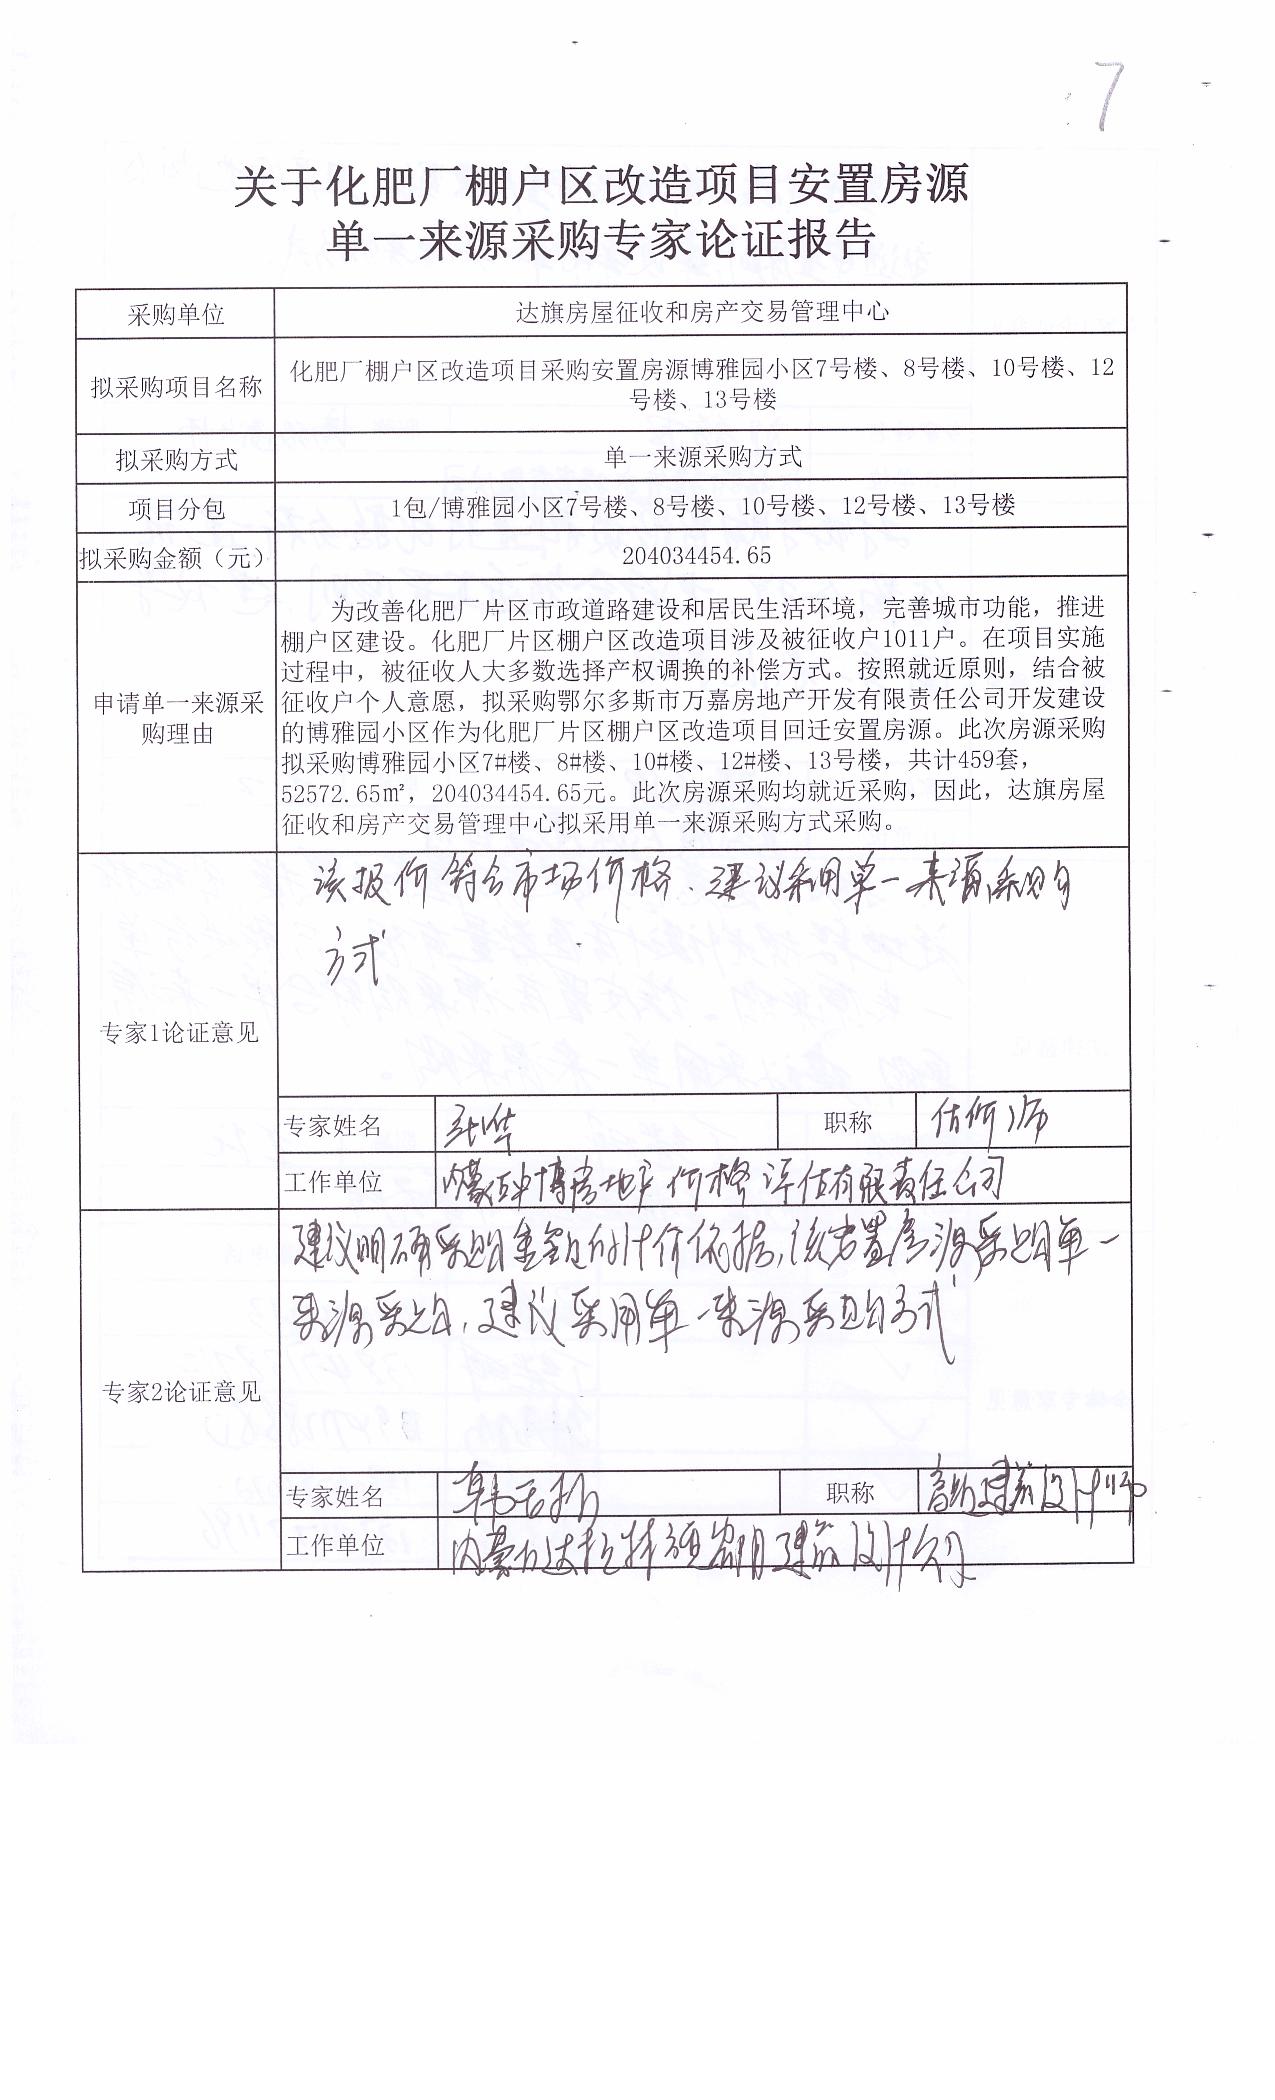 7
关于化肥厂棚户区改造项目安置房源
单一来源采购专家论证报告
采购单位
达旗房屋征收和房产交易管理中心
拟采购项目名称
化肥厂棚户区改造项目采购安置房源博雅园小区7号楼、8号楼、10号楼、12
号楼、13号楼
拟采购方式
单一来源采购方式
项目分包
1包/博雅园小区7号楼、8号楼、10号楼、12号楼、13号楼
拟采购金额（元）
204034454.65
申请单一来源采
购理由
为改善化肥厂片区市政道路建设和居民生活环境，完善城市功能，推进
棚户区建设。化肥厂片区棚户区改造项目涉及被征收户1011户。在项目实施
过程中，被征收人大多数选择产权调换的补偿方式。按照就近原则，结合被
征收户个人意愿，拟采购鄂尔多斯市万嘉房地产开发有限责任公司开发建设
的博雅园小区作为化肥厂片区棚户区改造项目回迁安置房源。此次房源采购
拟采购博雅园小区7#楼、8#楼、10#楼、12#楼、13号楼，共计459套，
52572.65㎡，204034454.65元。此次房源采购均就近采购，因此，达旗房屋
征收和房产交易管理中心拟采用单一来源采购方式采购。
专家1论证意见
该报价符合市场价格、建议采用单一来源采购
方式
专家姓名
张华
职称
估价师
工作单位
内蒙古中博房地产价格评估有限责任公司
专家2论证意见
建议明确采购金额的计价依据，该安置房源采购单一
来源采购，建议采用单一来源采购方式
专家姓名
韩
职称
高级建筑设计师
工作单位
内蒙古达拉特建筑设计公司